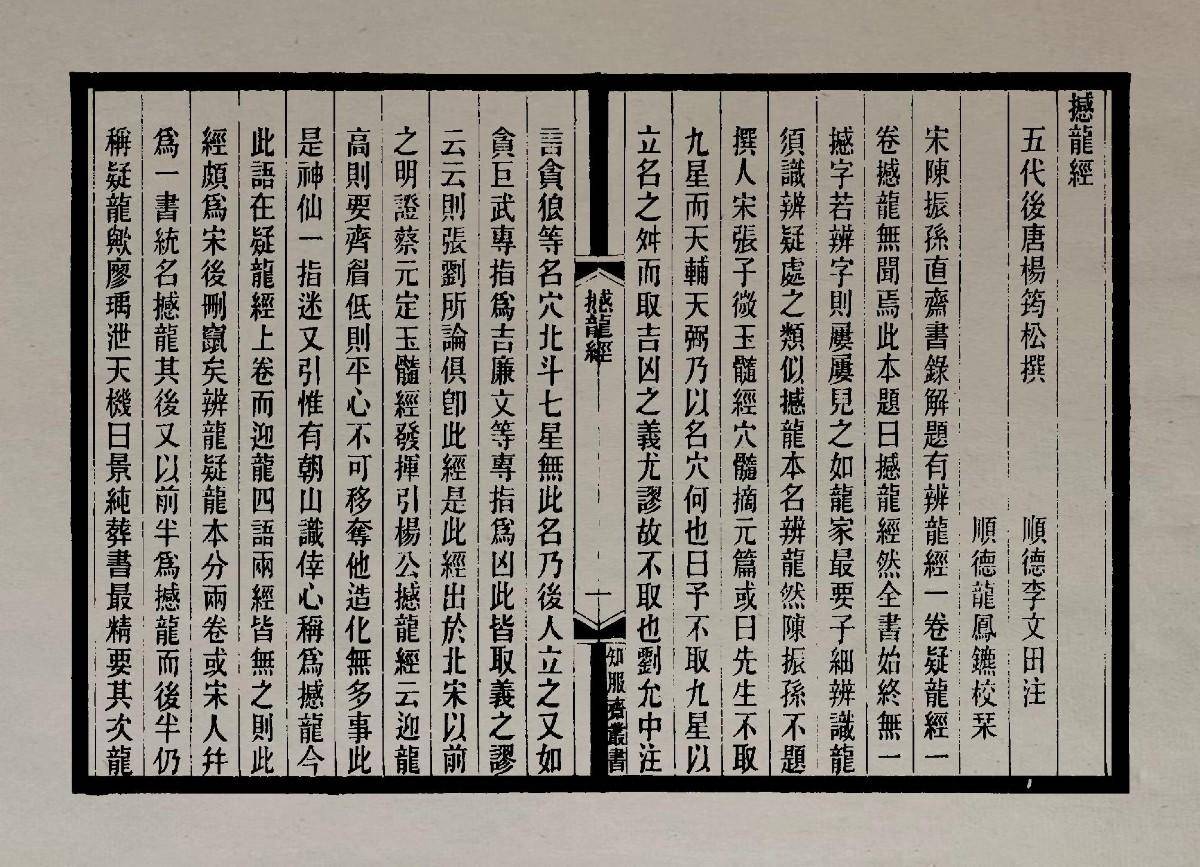 撼龍經
五代後唐楊筠松撰　順德李文田注
順德龍鳳鑣校栞
宋陳振孫直齋書錄解題有辨龍經一卷疑龍經一
卷撼龍無聞焉此本題曰撼龍經然全書始終無一
撼字若辨字則屢屢見之如龍家最要子細辨識龍
須識辨疑處之類似撼龍本名辨龍然陳振孫不題
撰人宋張子微玉髓經穴髓摘元篇或曰先生不取
九星而天輔天弼乃以名穴何也曰予不取九星以
立名之舛而取吉凶之義尤謬故不取也劉允中注
撼龍經
一
知服齋叢書
言貪狼等名穴北斗七星無此名乃後人立之又如
貪巨武專指爲吉廉文等專指爲凶此皆取義之謬
云云則張劉所論俱卽此經是此經出於北宋以前
之明證蔡元定玉髓經發揮引楊公撼龍經云迎龍
高則要齊眉低則平心不可移奪他造化無多事此
是神仙一指迷又引惟有朝山識倖心稱爲撼龍今
此語在疑龍經上卷而迎龍四語兩經皆無之則此
經頗爲宋後刪竄矣辨龍疑龍本分兩卷或宋人幷
爲一書統名撼龍其後又以前半爲撼龍而後半仍
稱疑龍歟廖瑀泄天機曰景純葬書最精要其次龍